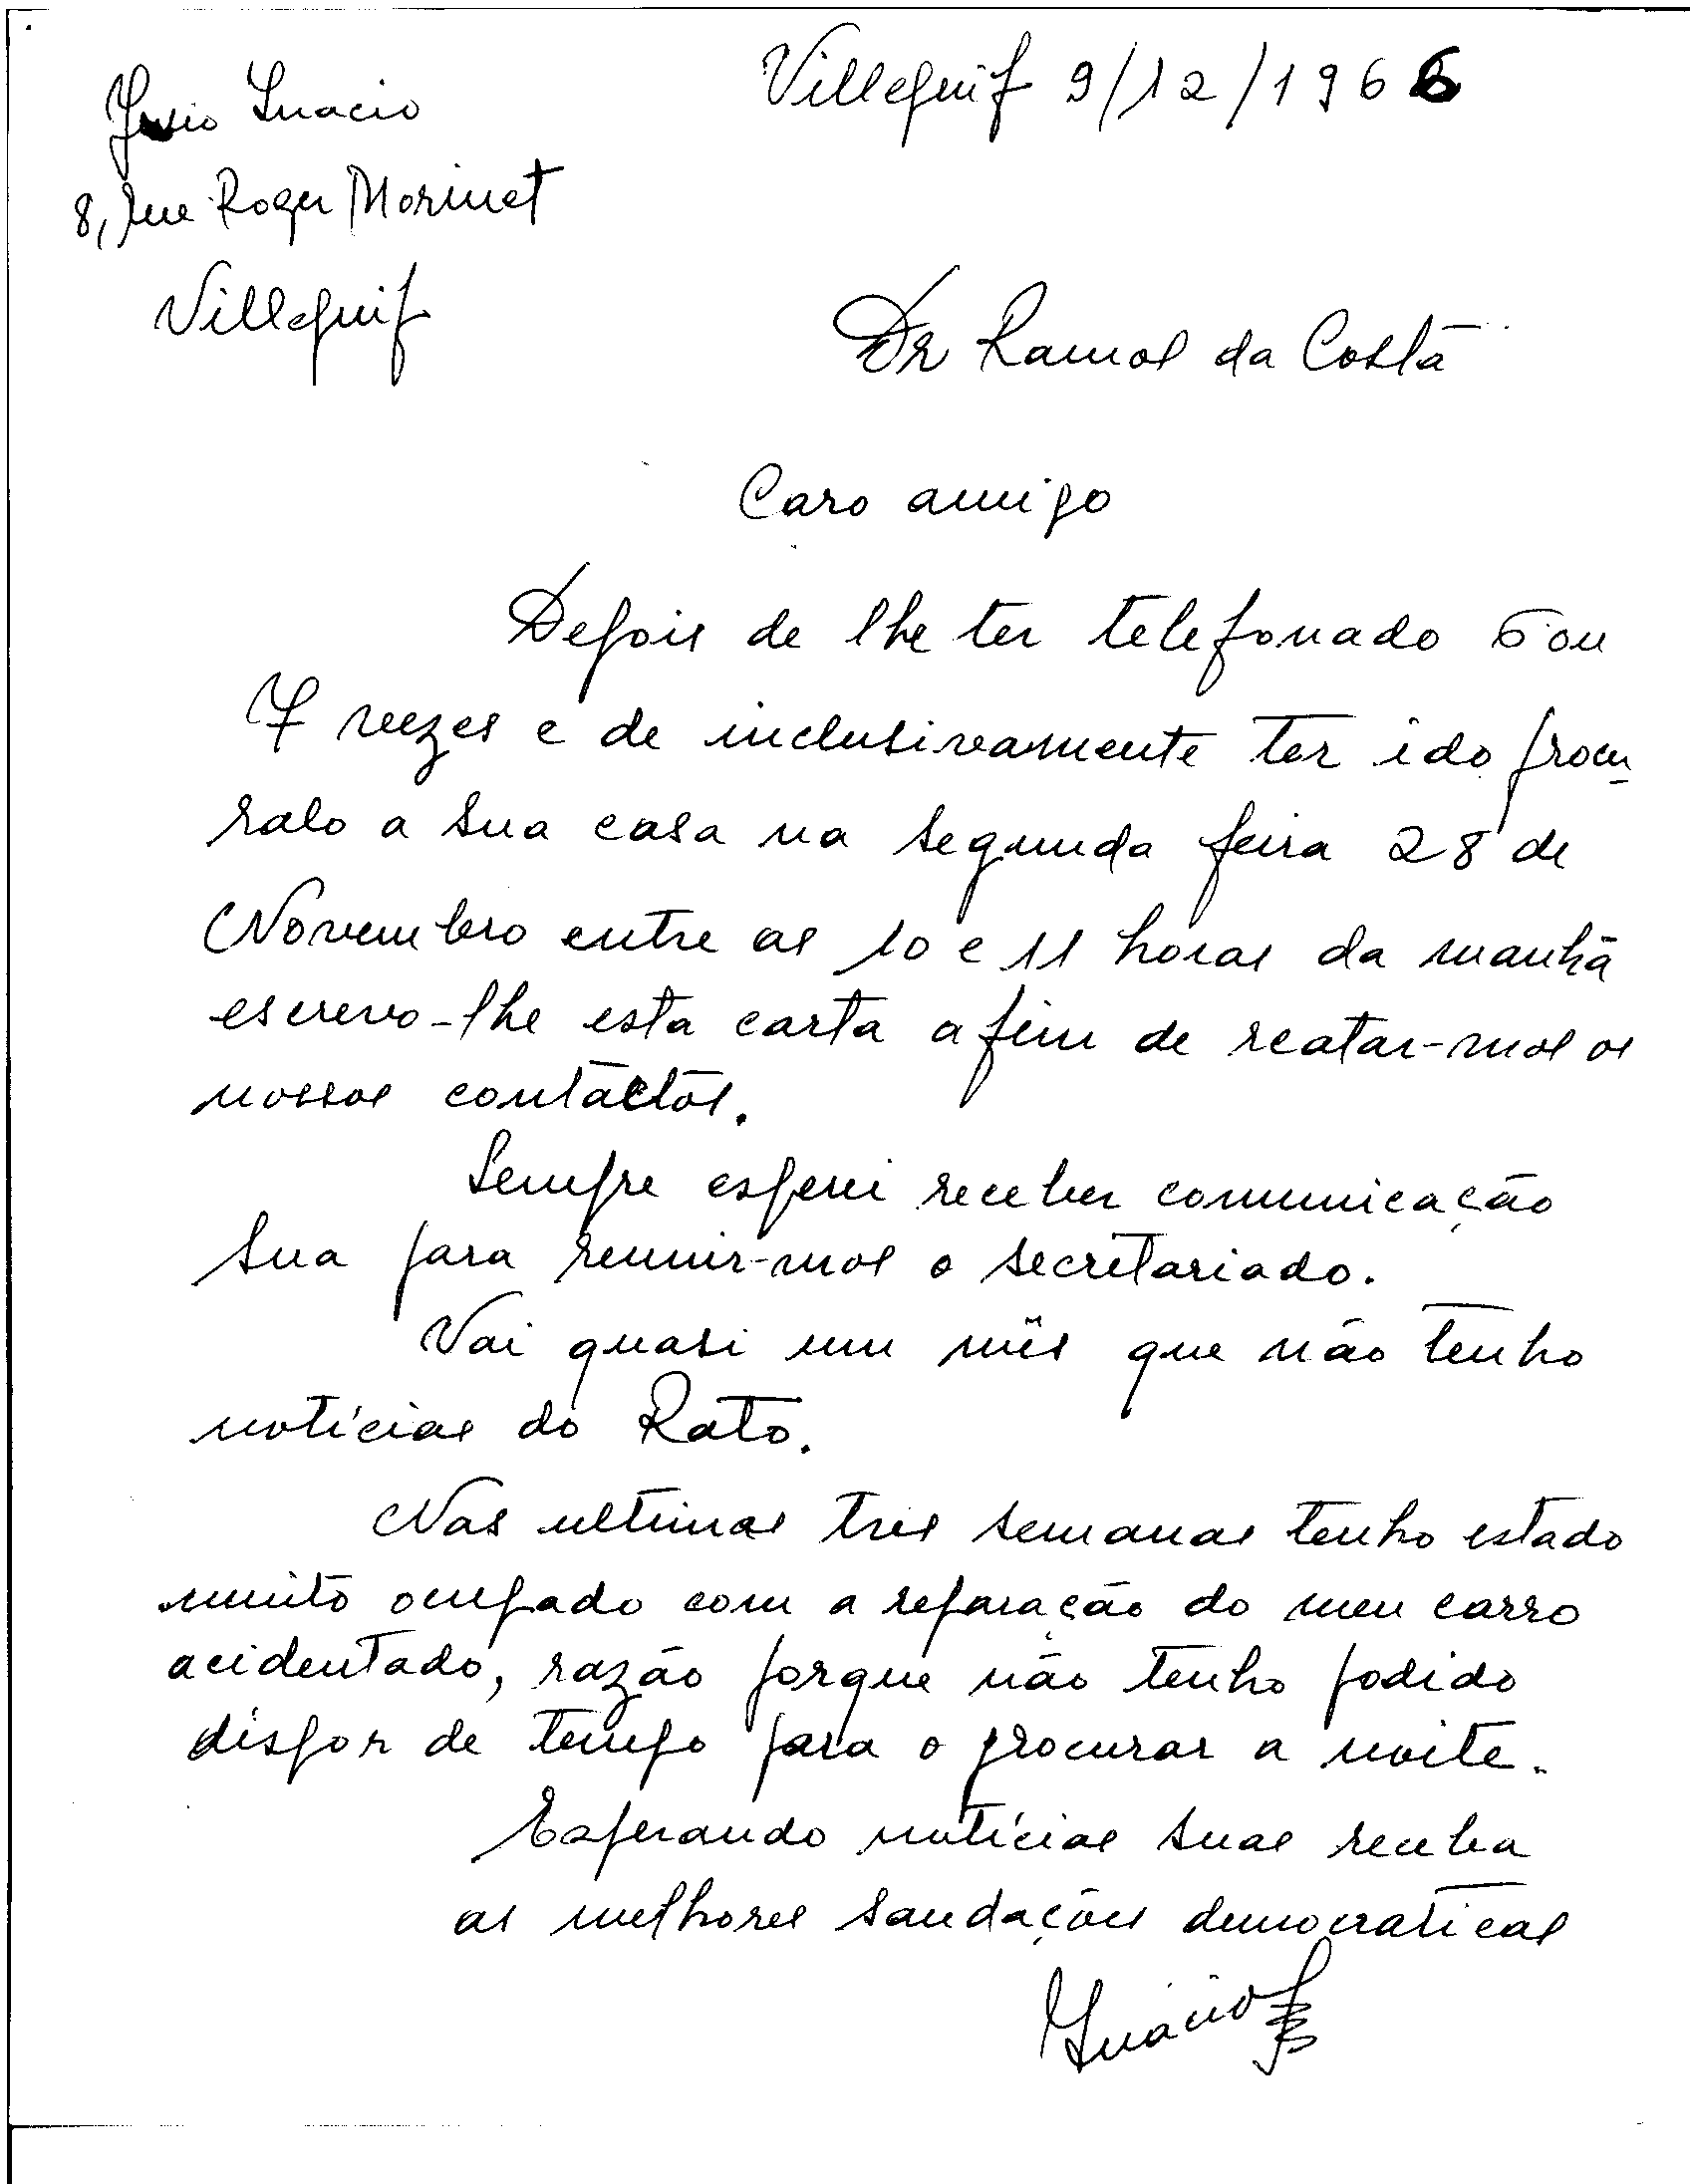 Inacio
8, rue Roger Morinet
Villejuif
Villejuif 9/12/1966
Dr Ramos da Costa
Caro amigo
Depois de lhe ter telefonado 6 ou
7 veezes e de inclusiveamente ter ido procu-
ralo a sua casa na segunda feira 28 de
Novembro entre as 10 e 11 horas da manhã
escrevo-lhe esta carta afim de reatar-mos os
nossos contactos.
Sempre esperei receber comunicação
sua para reunir-mos o secretariado.
Vai quasi um mês que não tenho
notícias do Rato.
Nas ultimas tres semanas tenho estado
muito ocupado com a reparação do meu carro
acidentado, razão porque não tenho podido
dispor de tempo para o procurar a noite.
Esperando notícias suas receba
as melhores saudações democraticas
Inácio